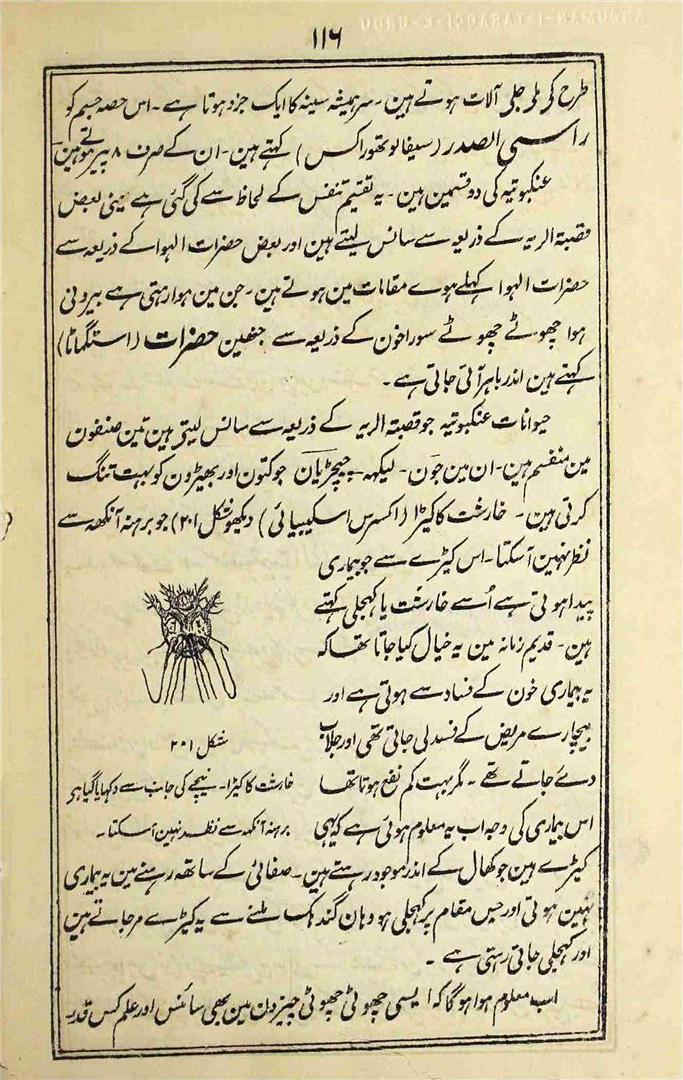 ۱۱۶
طرح کی ملی جلی آلات ہوتے ہین۔ سر ہمیشہ سینہ کا ایک جزو ہوتا ہے۔ اس حصہ جسم کو
راسی الصدر (سیفالوتھوراکس) کہتے ہین۔ ان کے صرف ۸ پیر ہوتے ہین
عنکبوتیہ کی دو قسمین ہین۔ یہ تقیم تنفس کے لحاظ سے کی گئی ہے یعنی بعض
قصبتہ الریہ کے ذریعہ سے سانس لیتے ہین اور بعض حضرات الہوا کے ذریعہ سے
حضرات الہوا کہلے ہوے مقامات مین ہوتے ہین۔ جن مین ہوا رہتی ہے بیرونی
ہوا چھوٹے چھوٹے سوراخون کے ذریعہ سے جنھین حضرات (اسٹگماٹا)
کہتے ہین اندر باہر آتی جاتی ہے۔
حیوانات عنکبوتیہ جو قصبتہ الریہ کے ذریعہ سے سانس لیتی ہین تین صنفون
مین منقسم ہین۔ ان مین جون۔ لیکہہ۔ چیچڑیان جو کتون اور بھیڑون کو بہت تنگ
کرتی ہین۔ خارشت کا کیڑا (اکسرس اسکیبیائی) دیکھو شکل ۲۰۱) جو برہنہ آنکھہ سے
نظر نہین آسکتا۔ اس کیڑے سے جو بیماری
پیدا ہوتی ہے اُسے خارشت یا کہجلی کہتے
ہین۔ قدیم زمانہ مین یہ خیال کیا جاتا تھا کہ
یہ بیماری خون کے فساد سے ہوتی ہے اور
بیچارے مریض کے فسد لی جاتی تھی اور جلاب
دئے جاتے تھے۔ مگر بہت کم نفع ہوتا تھا
اس بیماری کی وجہ اب یہ معلوم ہوئی ہے کہ یہی
شکل ۲۰۱
خارشت کا کیڑا۔ نیچے کی جانب سے دکہایا گیا ہی
برہنہ آنکہہ سے نظر نہین آسکتا۔
کیڑے ہین جو کھال کے اندر موجود رہتے ہین۔ صفائی کے ساتھ رہنے مین یہ بیماری
نہین ہوتی اور جس مقام پر کہجلی ہو وہان گندہک ملنے سے یہ کیڑے مرجاتے ہین
اور کہجلی جاتی رہتی ہے۔
اب معلوم ہوا ہوگا کہ ایسی چھوٹی چھوٹی چیزون مین بھی سائنس اور علم کس قدر